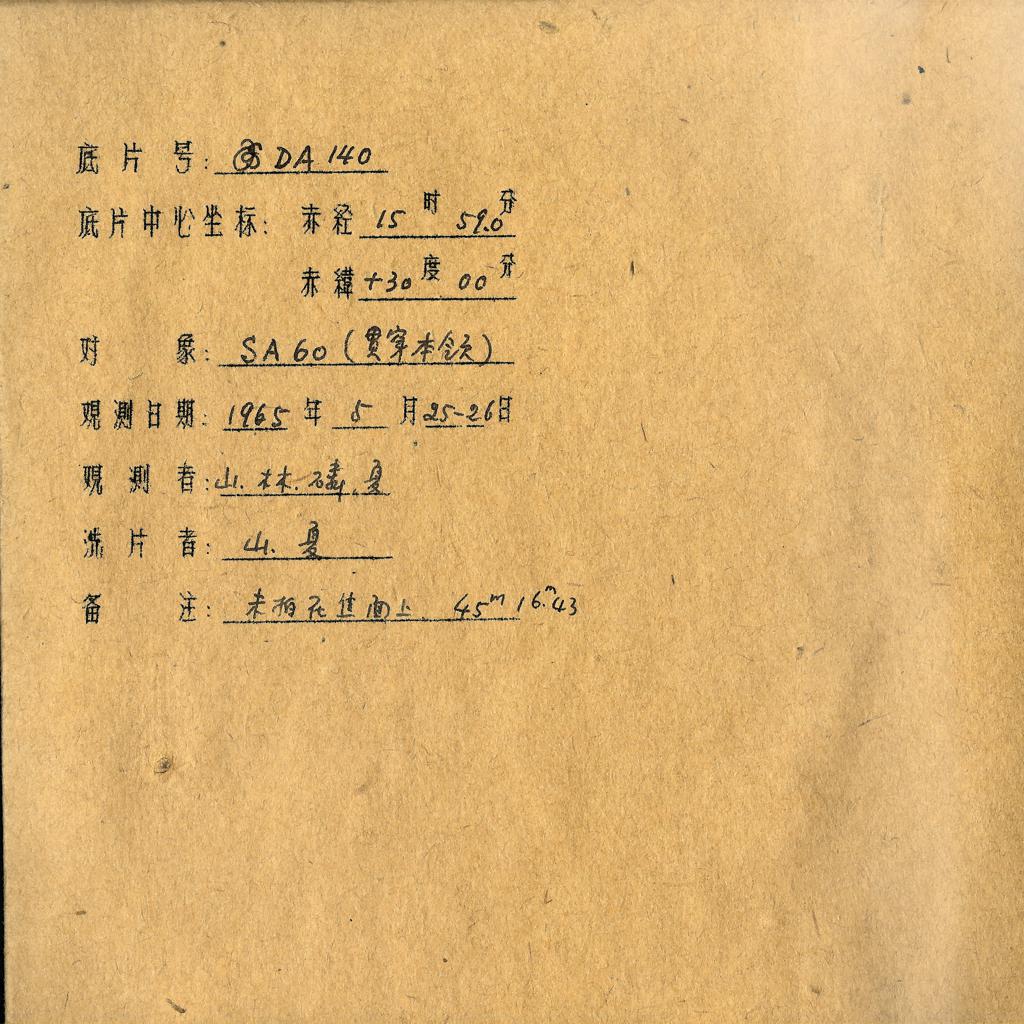 底片号: DA 140
底片中心坐标: 赤经 15 时 59.0 分
赤緯 +30 度 00 分
对象: SA 60 (贯穿本领)
观测日期: 1965 年 5 月 25-26 日
观测者: 山. 林. 磷. 夏
洗片者: 山. 夏
备注: 未拍在焦面上 45m 16.m43